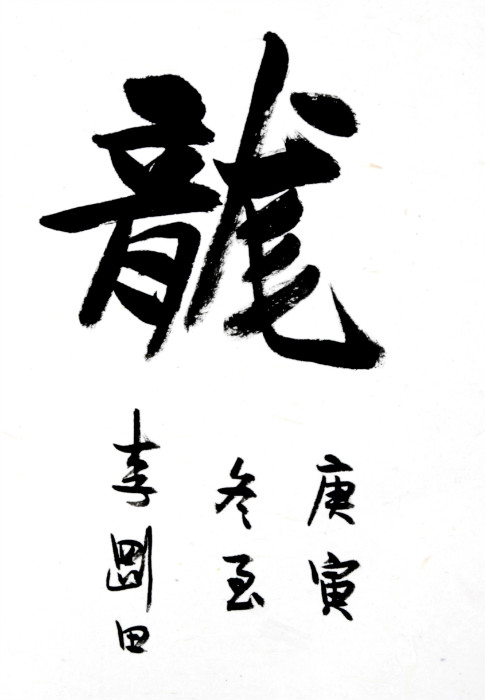 龍
庚寅
冬至
李剛田